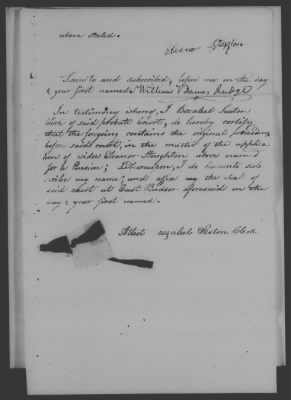 above stated.
Eleanor Stoughton
Sworn to and subscribed, before me on the day
& year first named; William Barnes Judge
In testimony whereof, I Bezaleel Sexton
Clerk of said probate Court, do hereby certify
that the forgoing contains the original proceedings
before said court, in the matter of the applica
tion of widow Eleanor Stoughton above named
for a Pension; I hereunto sub
scribe my name; and affix my the seal of
said court at East Windsor aforesaid on the
day & year first named.
Attest Bezaleel Sexton Clerk